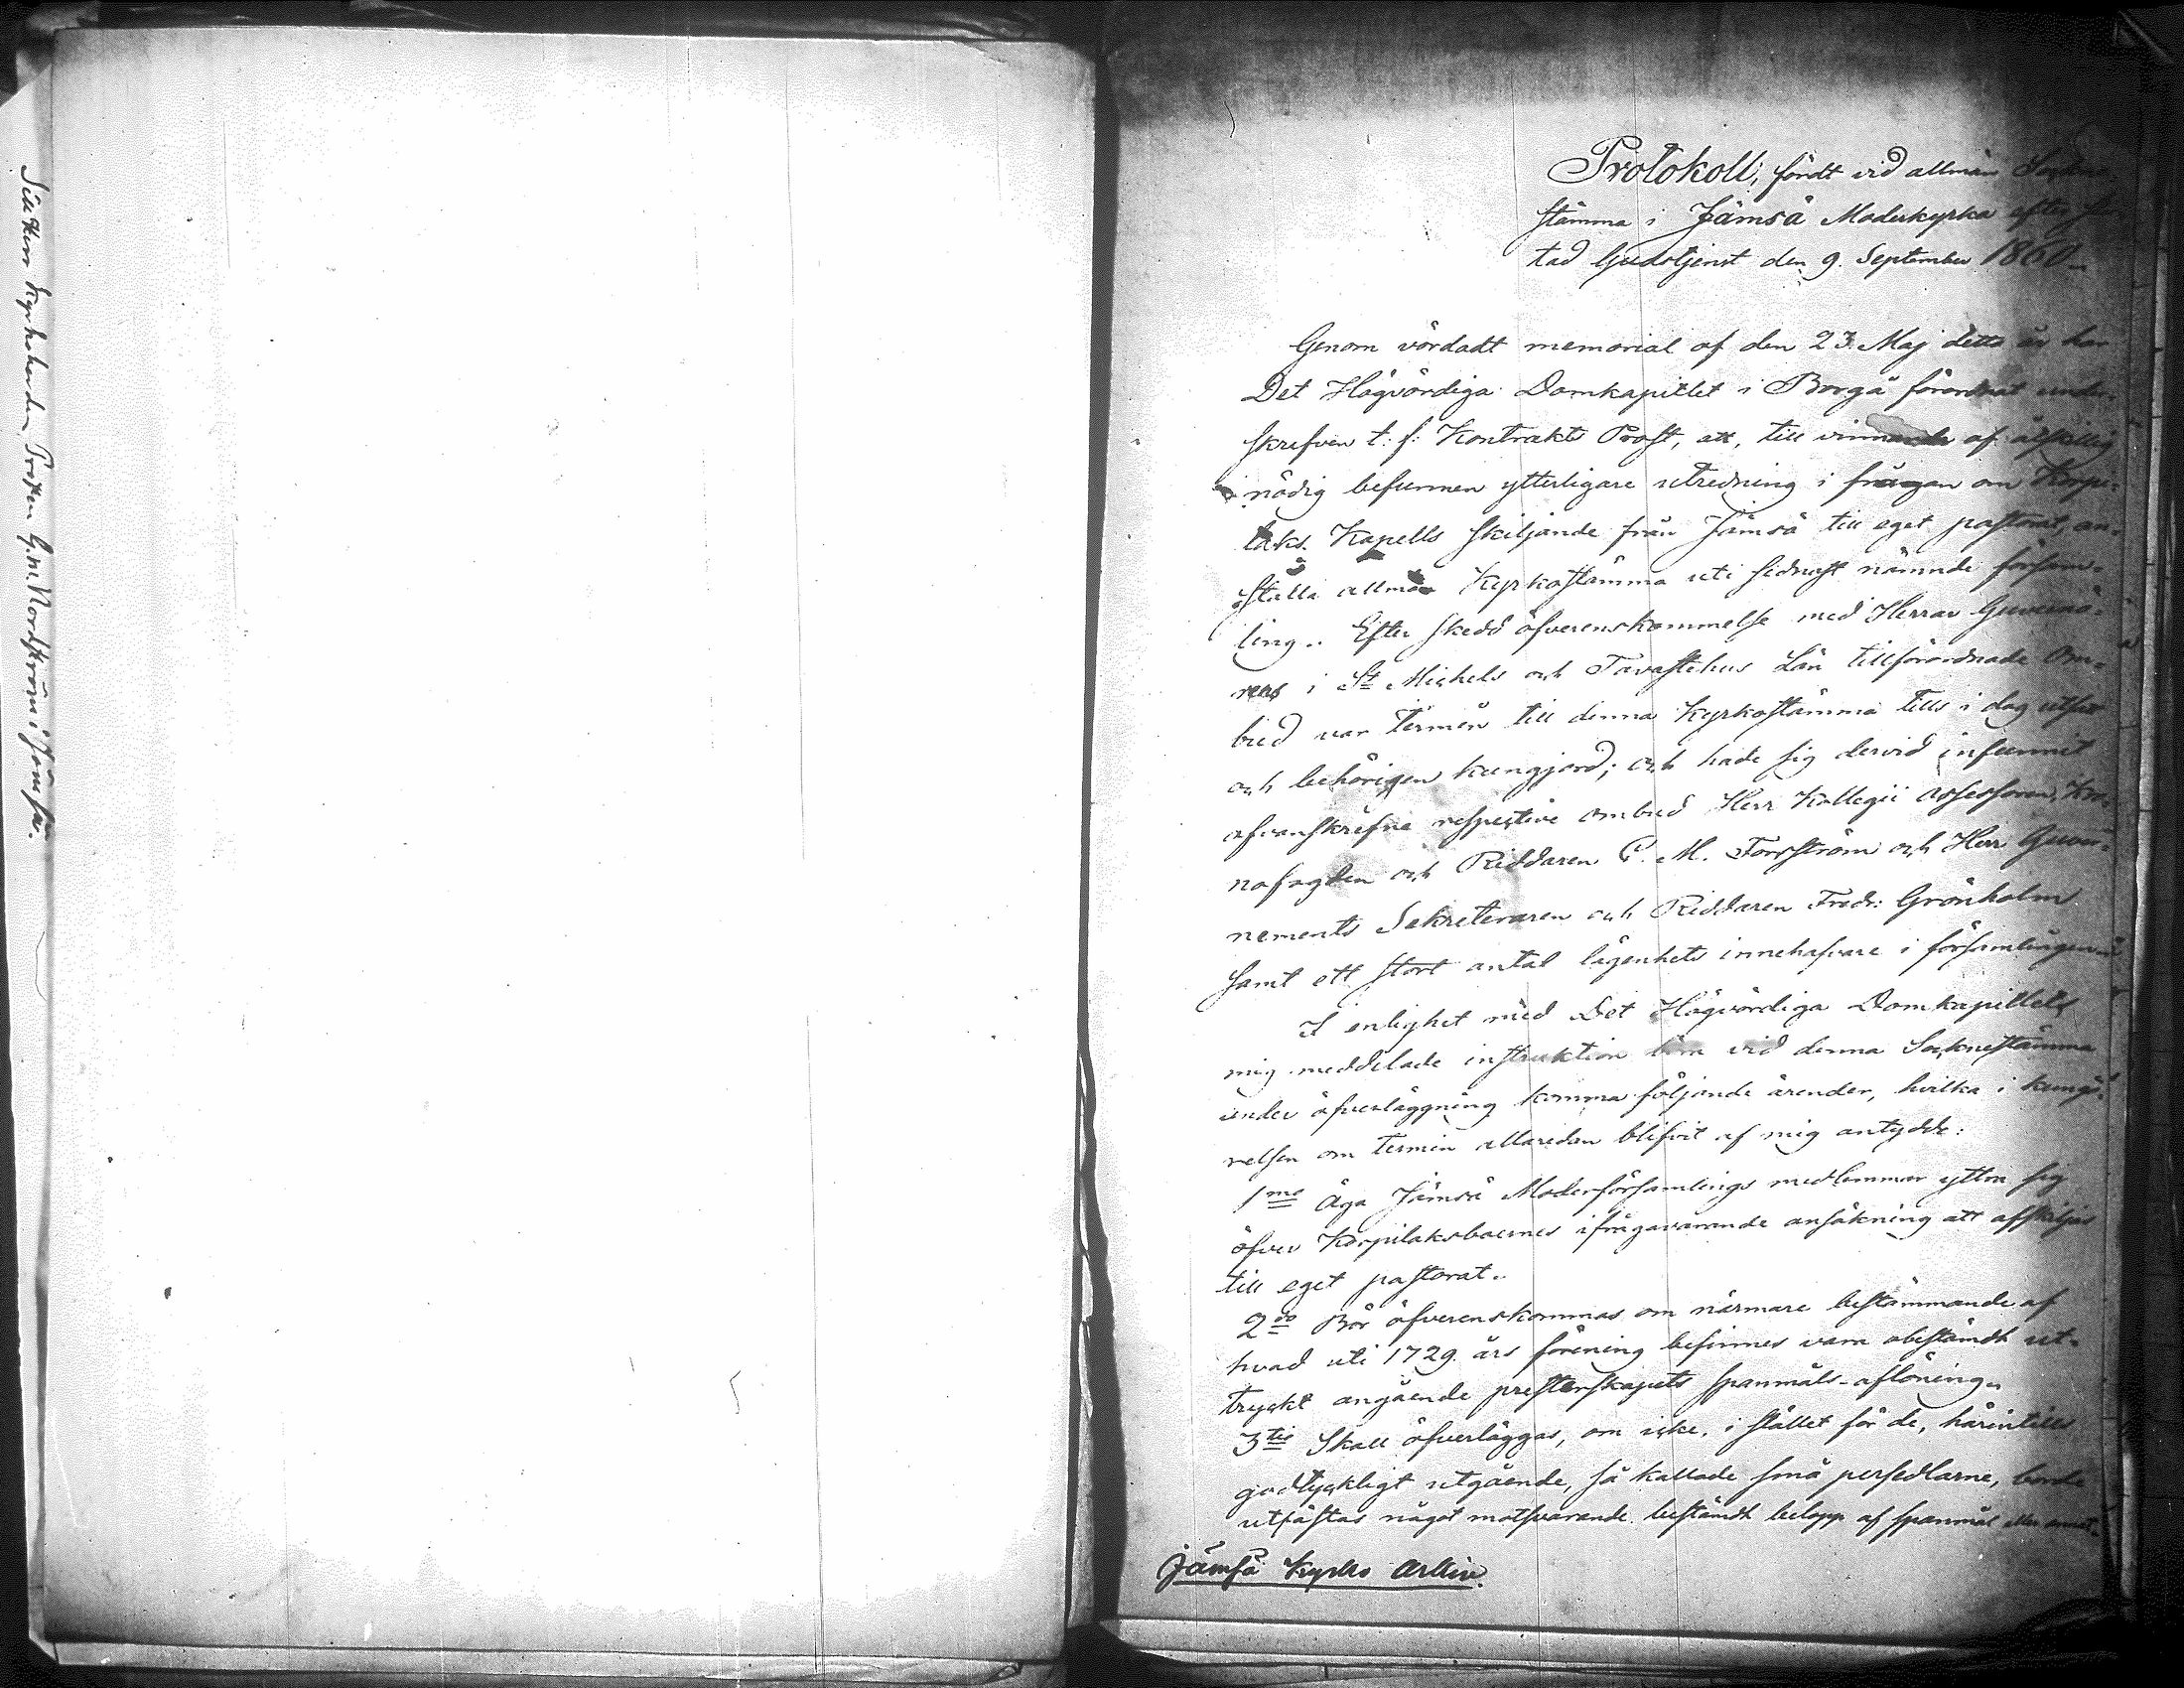 Till Herr Kyrkoherden Prosten G. M. Nordström i Jämsä.
Protokoll, fördt vid allmän Sockne-
stämma i Jämsä Moderkyrka efter slu-
tad Gudstjenst den 9. September 1860.
Genom vördadt memorial af den 23. Maj detta år har
Det Högvördiga Domkapitlet i Borgå förordnat under-
skrefven t: f: Kontrakts Prost, att, till vinnande af åtskillig
nödig befunnen ytterligare utredning i frågan om Korpi-
laks Kapells skiljande från Jämsä till eget pastorat, an-
ställa allmän Kyrkostämma uti sednast nämnde försam-
ling. Efter skedd öfverenskommelse med Herrar Guvernö-
rens i St Michels och Tavastehus Län tillförordnade Om-
bud var termin till denna Kyrkostämma tills i dag utsatt
och behörigen kungjord; och hade sig dervid infunnit
ofvanskrefne respective ombud Herr Kollegii Assessoren, Kro-
nofogden och Riddaren C. M. Forsström och Herr Guver-
nements Sekreteraren och Riddaren Fredr: Grönholm
samt ett stort antal lägenhets innehafvare i församlingen.
I enlighet med Det Högvördiga Domkapitlets
mig meddelade instruktion böra vid denna Socknestämma
under öfverläggning komma följande ärender, hvilka i kungö-
relsen om termin allaredan blifvit af mig antydde:
1mo Äga Jämsä Moderförsamlings medlemmar yttra sig
öfver Korpilaksboernes ifrågavarande ansökning att afskiljas
till eget pastorat.
2do Bör öfverenskommas om närmare bestämmande af
hvad uti 1729 års förening befinnes vara obestämdt ut-
tryckt angående presterskapets spanmåls-aflöning.
3tio Skall öfverläggas, om icke, i stället för de, härintills
godtyckligt utgående, så kallade små persedlarne, borde
utfästas något motsvarande bestämdt belopp af spanmål eller annat.
Jämsä Kyrko Arkiv.